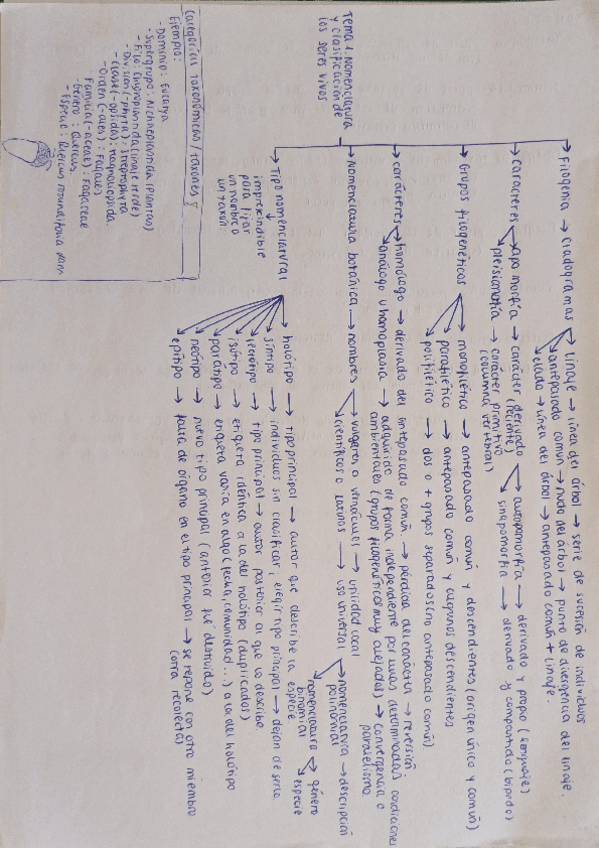 Tema 1. Nomenclatura
y clasificación de
los seres vivos
Filogenia → cladogramas → linaje → línea del árbol → serie de sucesión de individuos
antepasado común → nudo del árbol → punto de divergencia del linaje.
clado → línea del árbol → antepasado común + linaje.
Caracteres → apomorfía → carácter derivado → autapomorfía → derivado y propio (lenguaje)
(reciente) sinapomorfía → derivado y compartido (bípedo)
plesiomorfía → carácter primitivo
(columna vertebral)
Grupos filogenéticos → monofilético → antepasado común y descendientes (origen único y común)
parafilético → antepasado común y algunos descendientes
polifilético → dos o + grupos separados (no antepasado común)
carácteres → homólogo → derivado del antepasado común. → pérdida del carácter → reversión
análogo u homoplasia → adquirido de forma independiente por unas determinadas condiciones
ambientales (grupos filogenéticos muy alejados) → convergencia o
paralelismo.
Nomenclatura botánica → nombres → vulgares o vernáculos → utilidad local
científicos o latinos → uso universal → nomenclatura → descripción
polinomial
nomenclatura → género
binomial especie
Tipo nomenclatural
imprescindible
para fijar
un nombre o
un taxón
holótipo → tipo principal → autor que describe la especie
síntipo → individuos sin clasificar, elegir tipo principal → dejan de serlo
lectótipo → tipo principal → autor posterior al que lo describe
isótipo → etiqueta idéntica a la del holótipo (duplicados)
parátipo → etiqueta varía en algo (fecha, comunidad...) a la del holótipo
neótipo → nuevo tipo principal (anterior fué destruido)
epítipo → falta de órgano en el tipo principal → se repone con otro miembro
(otra recolecta)
Categorías taxonómicas / taxones
Ejemplo:
- Dominio: Eucarya
- Supergrupo: Archaeplastida (plantas)
- Filo: Chloroplastida (linaje verde)
- División (-phyta): Streptophyta
- Clase (-opsida): Magnoliopsida.
- Orden (-ales): Fagales
Familia (-aceae): Fagaceae
- Género: Quercus.
- Especie: Quercus rotundifolia Lam